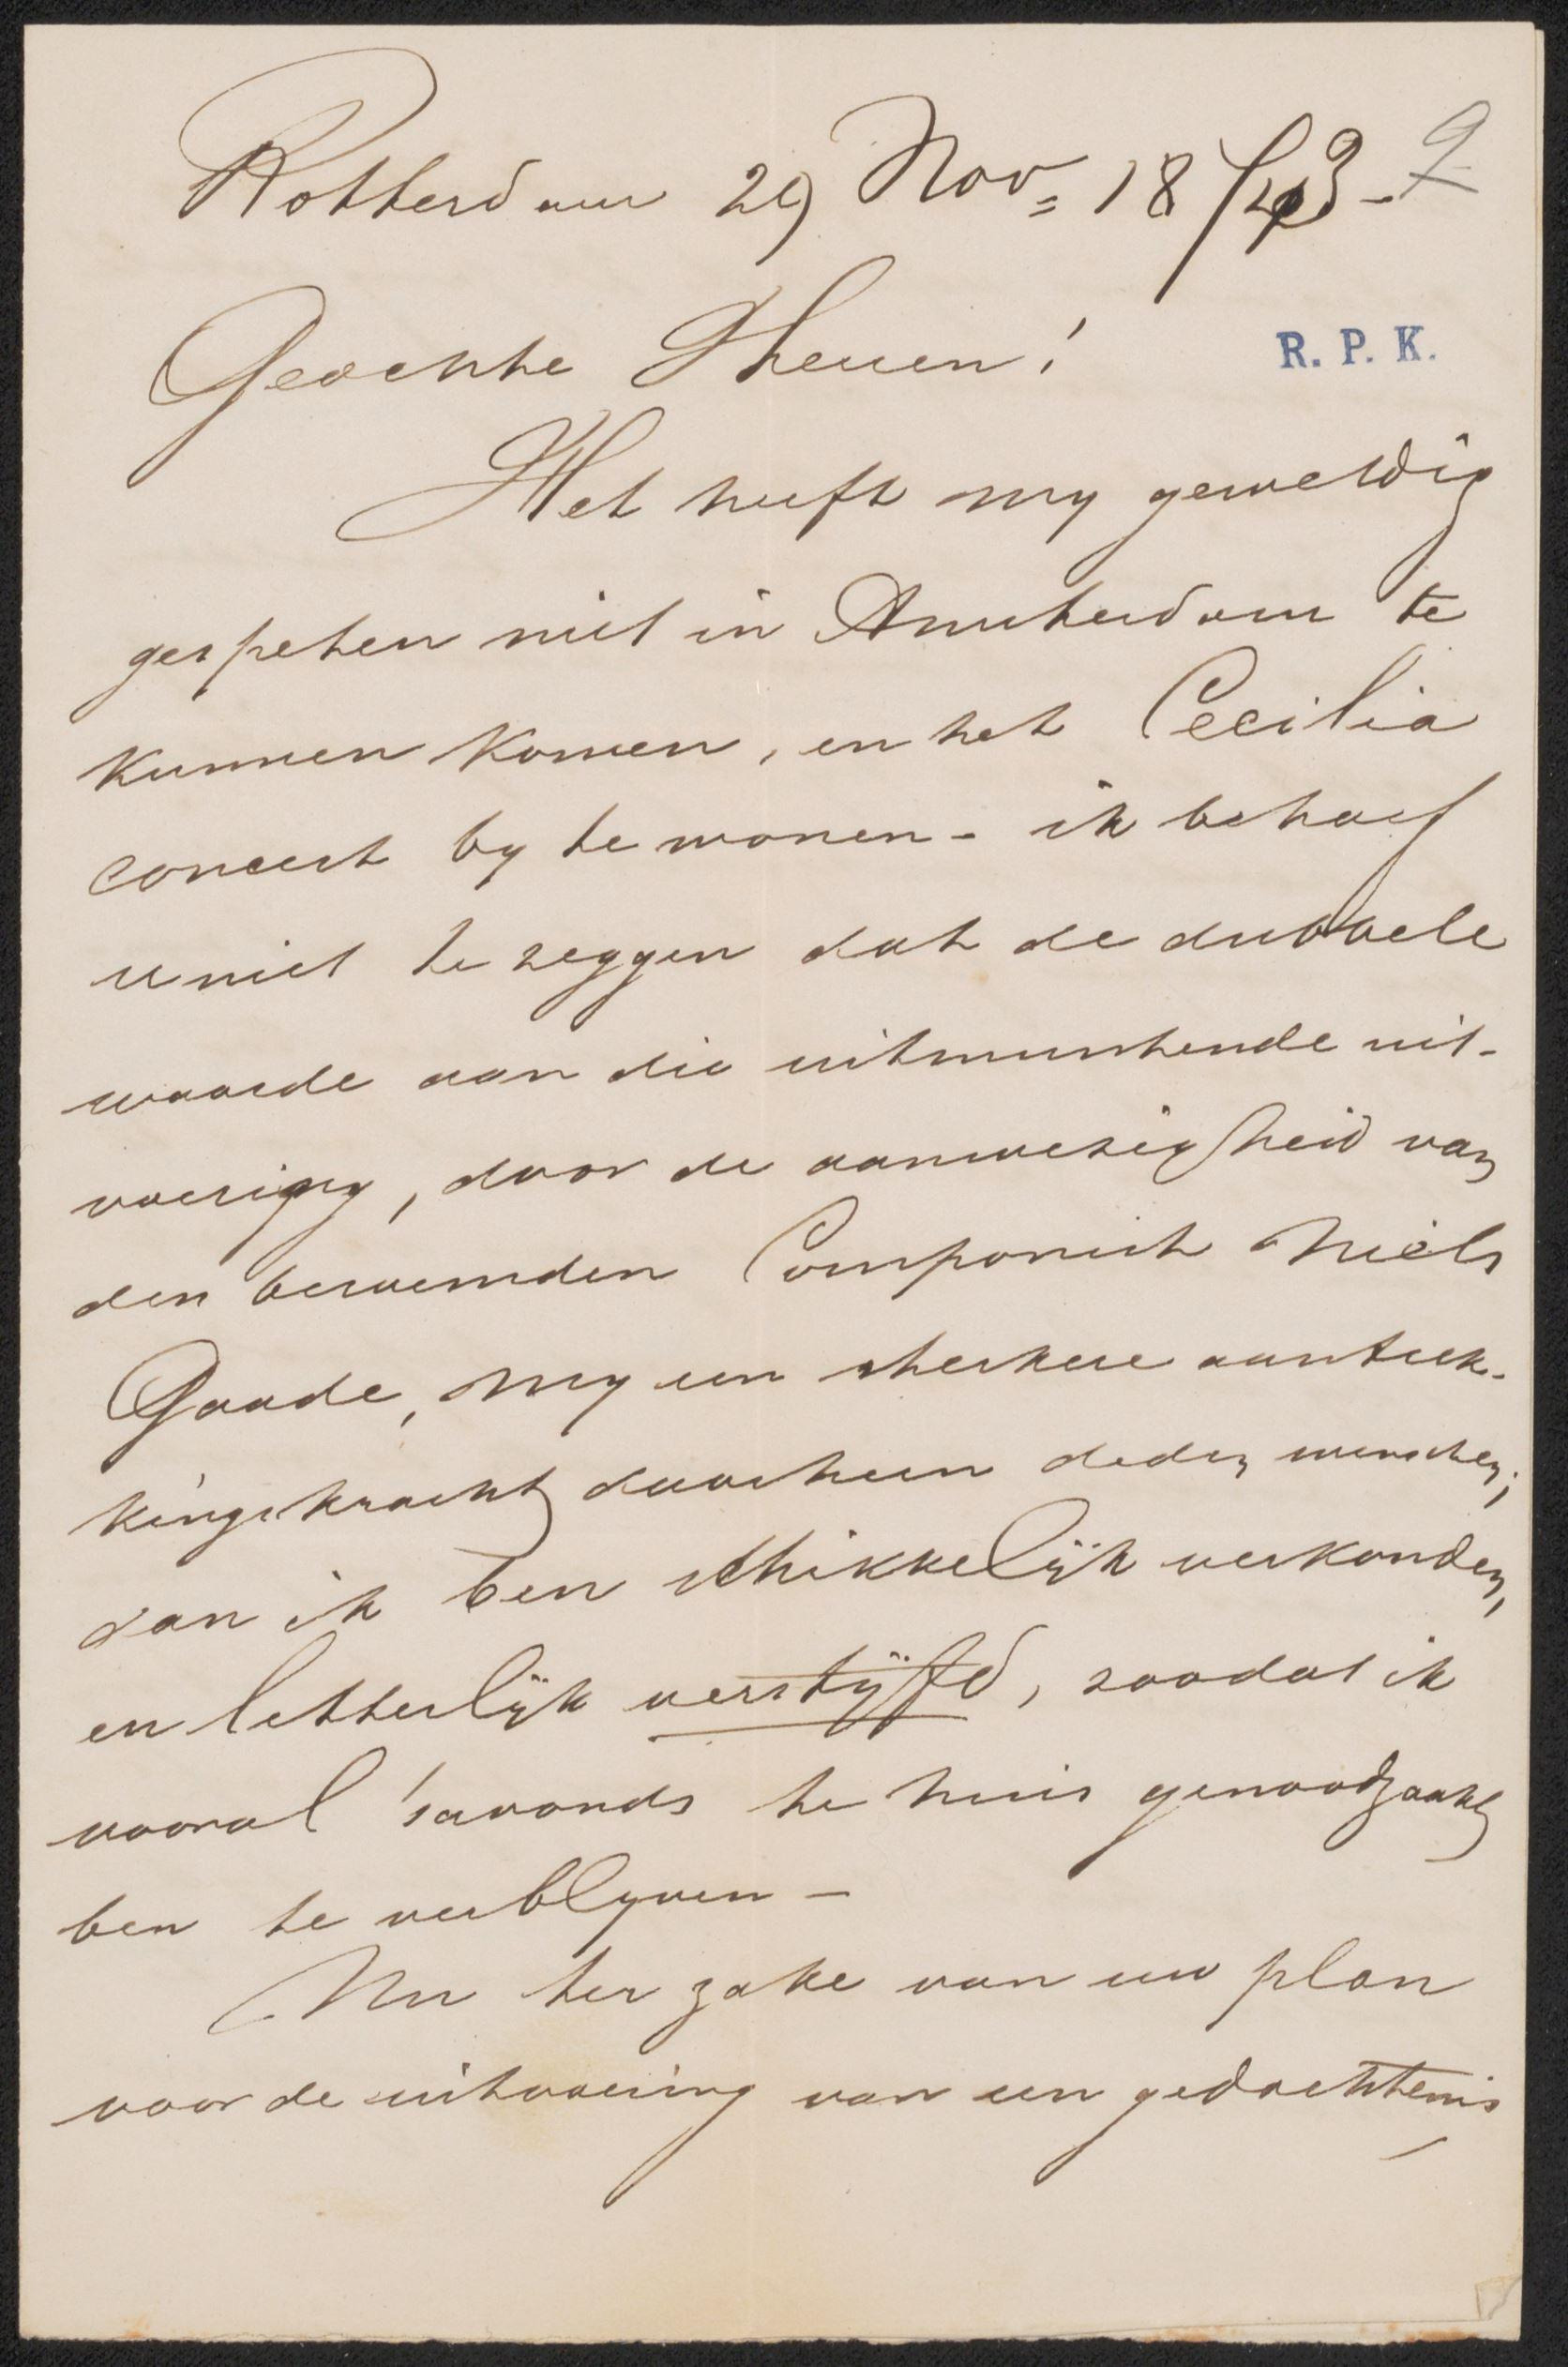 Rotterdam 29 Nov= 18/73 - 2
Geachte Heeren!
R. P. K.
Het heeft my geweldig
gespeten niet in Amsterdam te
kunnen komen, en het Cecilia
concert by te wonen - ik behoef
u niet te zeggen dat de dubbele
waarde van die uitmuntende uit-
voering, door de aanwezigheid van
den beroemden Componist Niels
Gaade, my een sterkere aantrek-
kingskracht daarheen deden wenschen;
dan ik ben schikkelijk verkouden,
en letterlijk verstijfd, zoodat ik
vooral 's avonds te huis genoodzaakt
ben te verblyven -
Nu ter zake van uw plan
voor de uitvoering van een gedachtenis